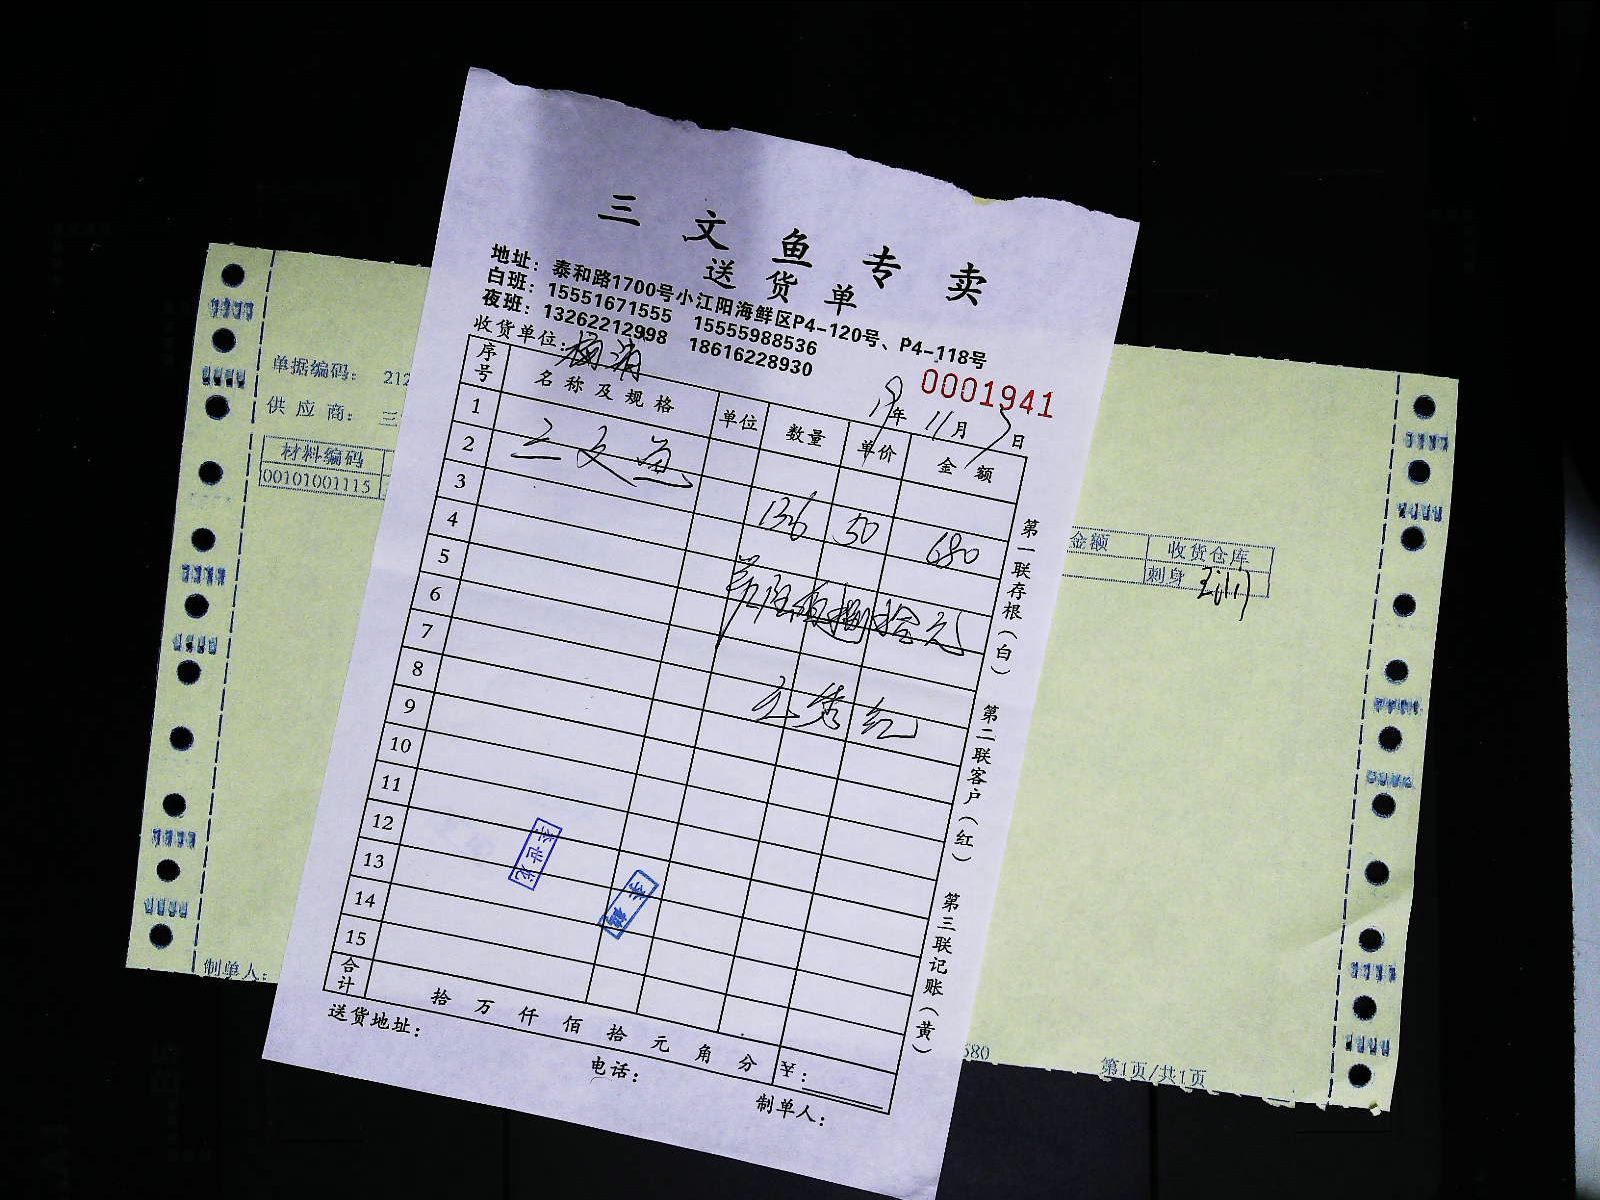 三文鱼专卖
送货单
地址：泰和路1700号小江阳海鲜区P4-120号、P4-118号
白班：15551671555 15555988536
夜班：13262212998 18616228930
收货单位：
0001941
19年 11月 5日
序号 名称及规格 单位 数量 单价 金额
1
2 三文鱼 136 50 680
3
4
5
6
7
8
9
10
11
12
13
14
15
合计 拾 万 仟 佰 拾 元 角 分 ￥：
送货地址：
电话：
制单人：
第一联存根（白） 第二联客户（红） 第三联记账（黄）
单据编码： 212
供应商： 三
材料编码
00101001115
金额 收货仓库
刺身
制单人：
680
第1页/共1页